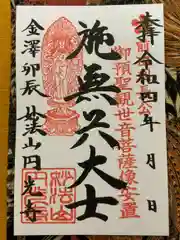 奉拝 令和四年 月 日
御預聖観世音菩薩像安置
施無畏大士
金澤卯辰 妙法山円光寺
妙法山